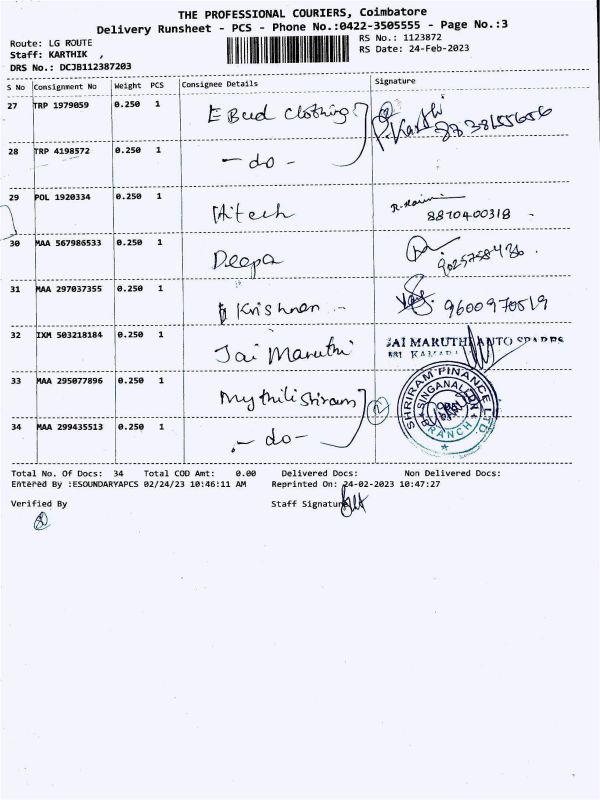 THE PROFESSIONAL COURIERS, Coimbatore
Delivery Runsheet - PCS - Phone No.:0422-3505555 - Page No.:3
Route: LG ROUTE
RS No.: 1123872
Staff: KARTHIK ,
RS Date: 24-Feb-2023
DRS No.: DCJB112387203
S No Consignment No Weight PCS Consignee Details Signature
27 TRP 1979059 0.250 1 E Bud Clothing P. Karthi
28 TRP 4198572 0.250 1 - do -
29 POL 1920334 0.250 1 Hitech 8870400318
30 MAA 567986533 0.250 1 Deepa 9025758436
31 MAA 297037355 0.250 1 Krishnan 9600970519
32 IXM 503218184 0.250 1 Jai Maruthi JAI MARUTHI AUTO SPARES
33 MAA 295077896 0.250 1 Mythili Shriram SHRIRAM FINANCE LTD
SINGANALLUR
BRANCH
34 MAA 299435513 0.250 1 - do -
Total No. Of Docs: 34 Total COD Amt: 0.00 Delivered Docs: Non Delivered Docs:
Entered By :ESOUNDARYAPCS 02/24/23 10:46:11 AM Reprinted On: 24-02-2023 10:47:27
Verified By Staff Signature